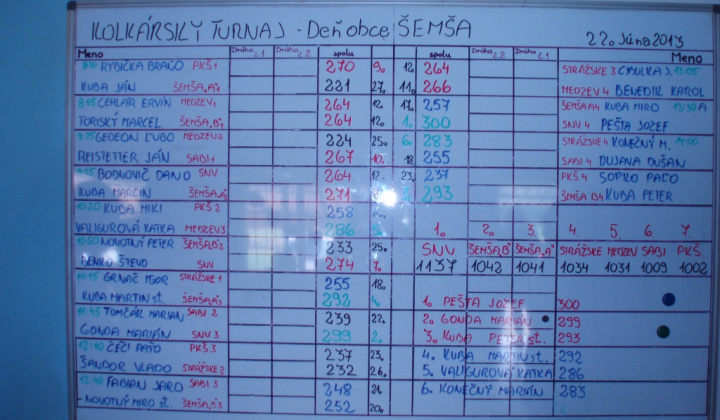 KOLKÁRSKY TURNAJ - Deň obce ŠEMŠA
22. Júna 2013
Meno Dráha č.1 Dráha č.2 spolu spolu Dráha č.2 Dráha č.1 Meno
RYBIČKA BRAŇO PKŠ1 270 9. 12. 264 STRÁŽSKE 3 CIBULKA J. 13:05
KUBA JÁN ŠEMŠA"A"1 221 27. 11. 266 MEDZEV 4 BENEDIK KAROL
8:55 CEHLÁR ERVÍN MEDZEV1 264 12. 17. 257 ŠEMŠA A4 KUBA MIRO 13:30
TORISKÝ MARCEL ŠEMŠA,B"1 264 12. 1. 300 SNV 4 PEŠTA JOZEF
GEDEON ĽUBO MEDZEV2 224 25. 6. 283 STRÁŽSKE 4 KONEČNÝ M. 14:00
REISTETTER JÁN SABI1 267 10. 18. 255 SABI 4 DUJAVA DUŠAN
BODNOVIČ DANO SNV 264 12. 23. 237 PKŠ 4 SOPKO PAĽO
KUBA MARCIN 271 293 ŠEMŠA B4 KUBA PETER
10:20 KUBA MIKI PKŠ 2 258
VALIGUROVÁ KATKA MEDZEV3 286 1. 2. 3. 4 5 6 7
10:50 NOVOTNÝ PETER ŠEMŠA,B"2 233 25. SNV ŠEMŠA,B" ŠEMŠA,A" STRÁŽSKE MEDZEV SABI PKŠ
BENKO ŠTEVO SNV 274 7. 1137 1042 1041 1034 1031 1009 1002
11:15 GRNÁČ IGOR STRÁŽSKE 1 255 18.
KUBA MARTIN st. 292 4. 1. PEŠTA JOZEF 300
11:45 TOMČÁK MARIAN SABI 2 239 22. 2. GONDA MARIÁN 299
GONDA MARIÁN SNV 3 299 2. 3. KUBA PETER st. 293
12:10 ČEČI PAĽO PKŠ 3 237 23. 4. KUBA MARTIN st. 292
ŠANDOR VLADO STRÁŽSKE 2 232 26. 5. VALIGUROVÁ KATKA 286
12:40 FABIAN JARO SABI 3 248 21. 6. KONEČNÝ MARIÁN 283
NOVOTNÝ MIRO st. 252 20.